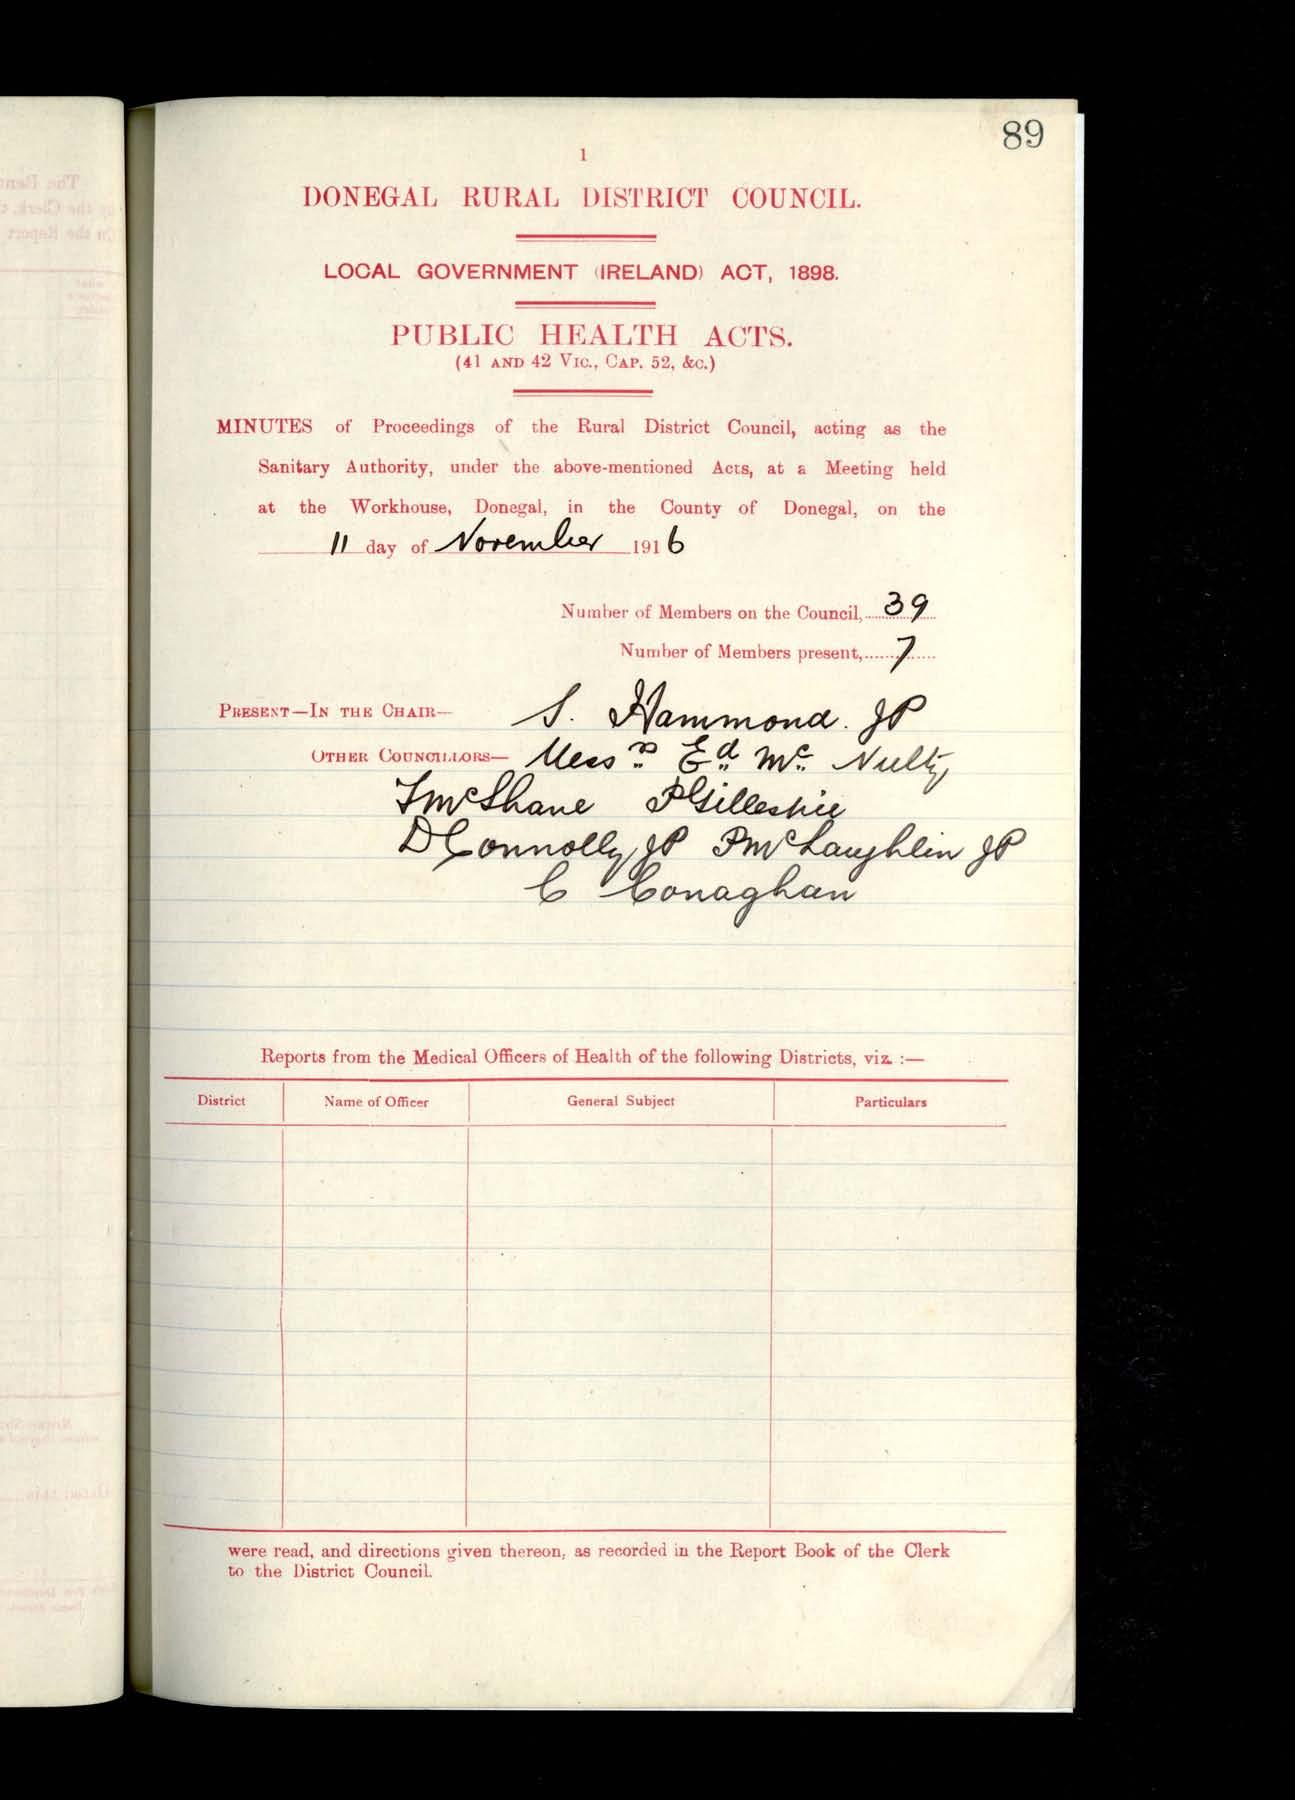 89
1
DONEGAL RURAL DISTRICT COUNCIL.
LOCAL GOVERNMENT (IRELAND) ACT, 1898.
PUBLIC HEALTH ACTS.
(41 AND 42 VIC., CAP. 52, &C.)
MINUTES of Proceedings of the Rural District Council, acting as the
Sanitary Authority, under the above-mentioned Acts, at a Meeting held
at the Workhouse, Donegal, in the County of Donegal, on the
11 day of November 1916
Number of Members on the Council, 39
Number of Members present, 7
PRESENT—IN THE CHAIR— S. Hammond. JP
OTHER COUNCILLORS— Messrs Ed Mc Nulty,
T McShane P Gillespie
D Connolly JP P McLaughlin JP
C Conaghan
Reports from the Medical Officers of Health of the following Districts, viz. :—
District Name of Officer General Subject Particulars
were read, and directions given thereon, as recorded in the Report Book of the Clerk
to the District Council.